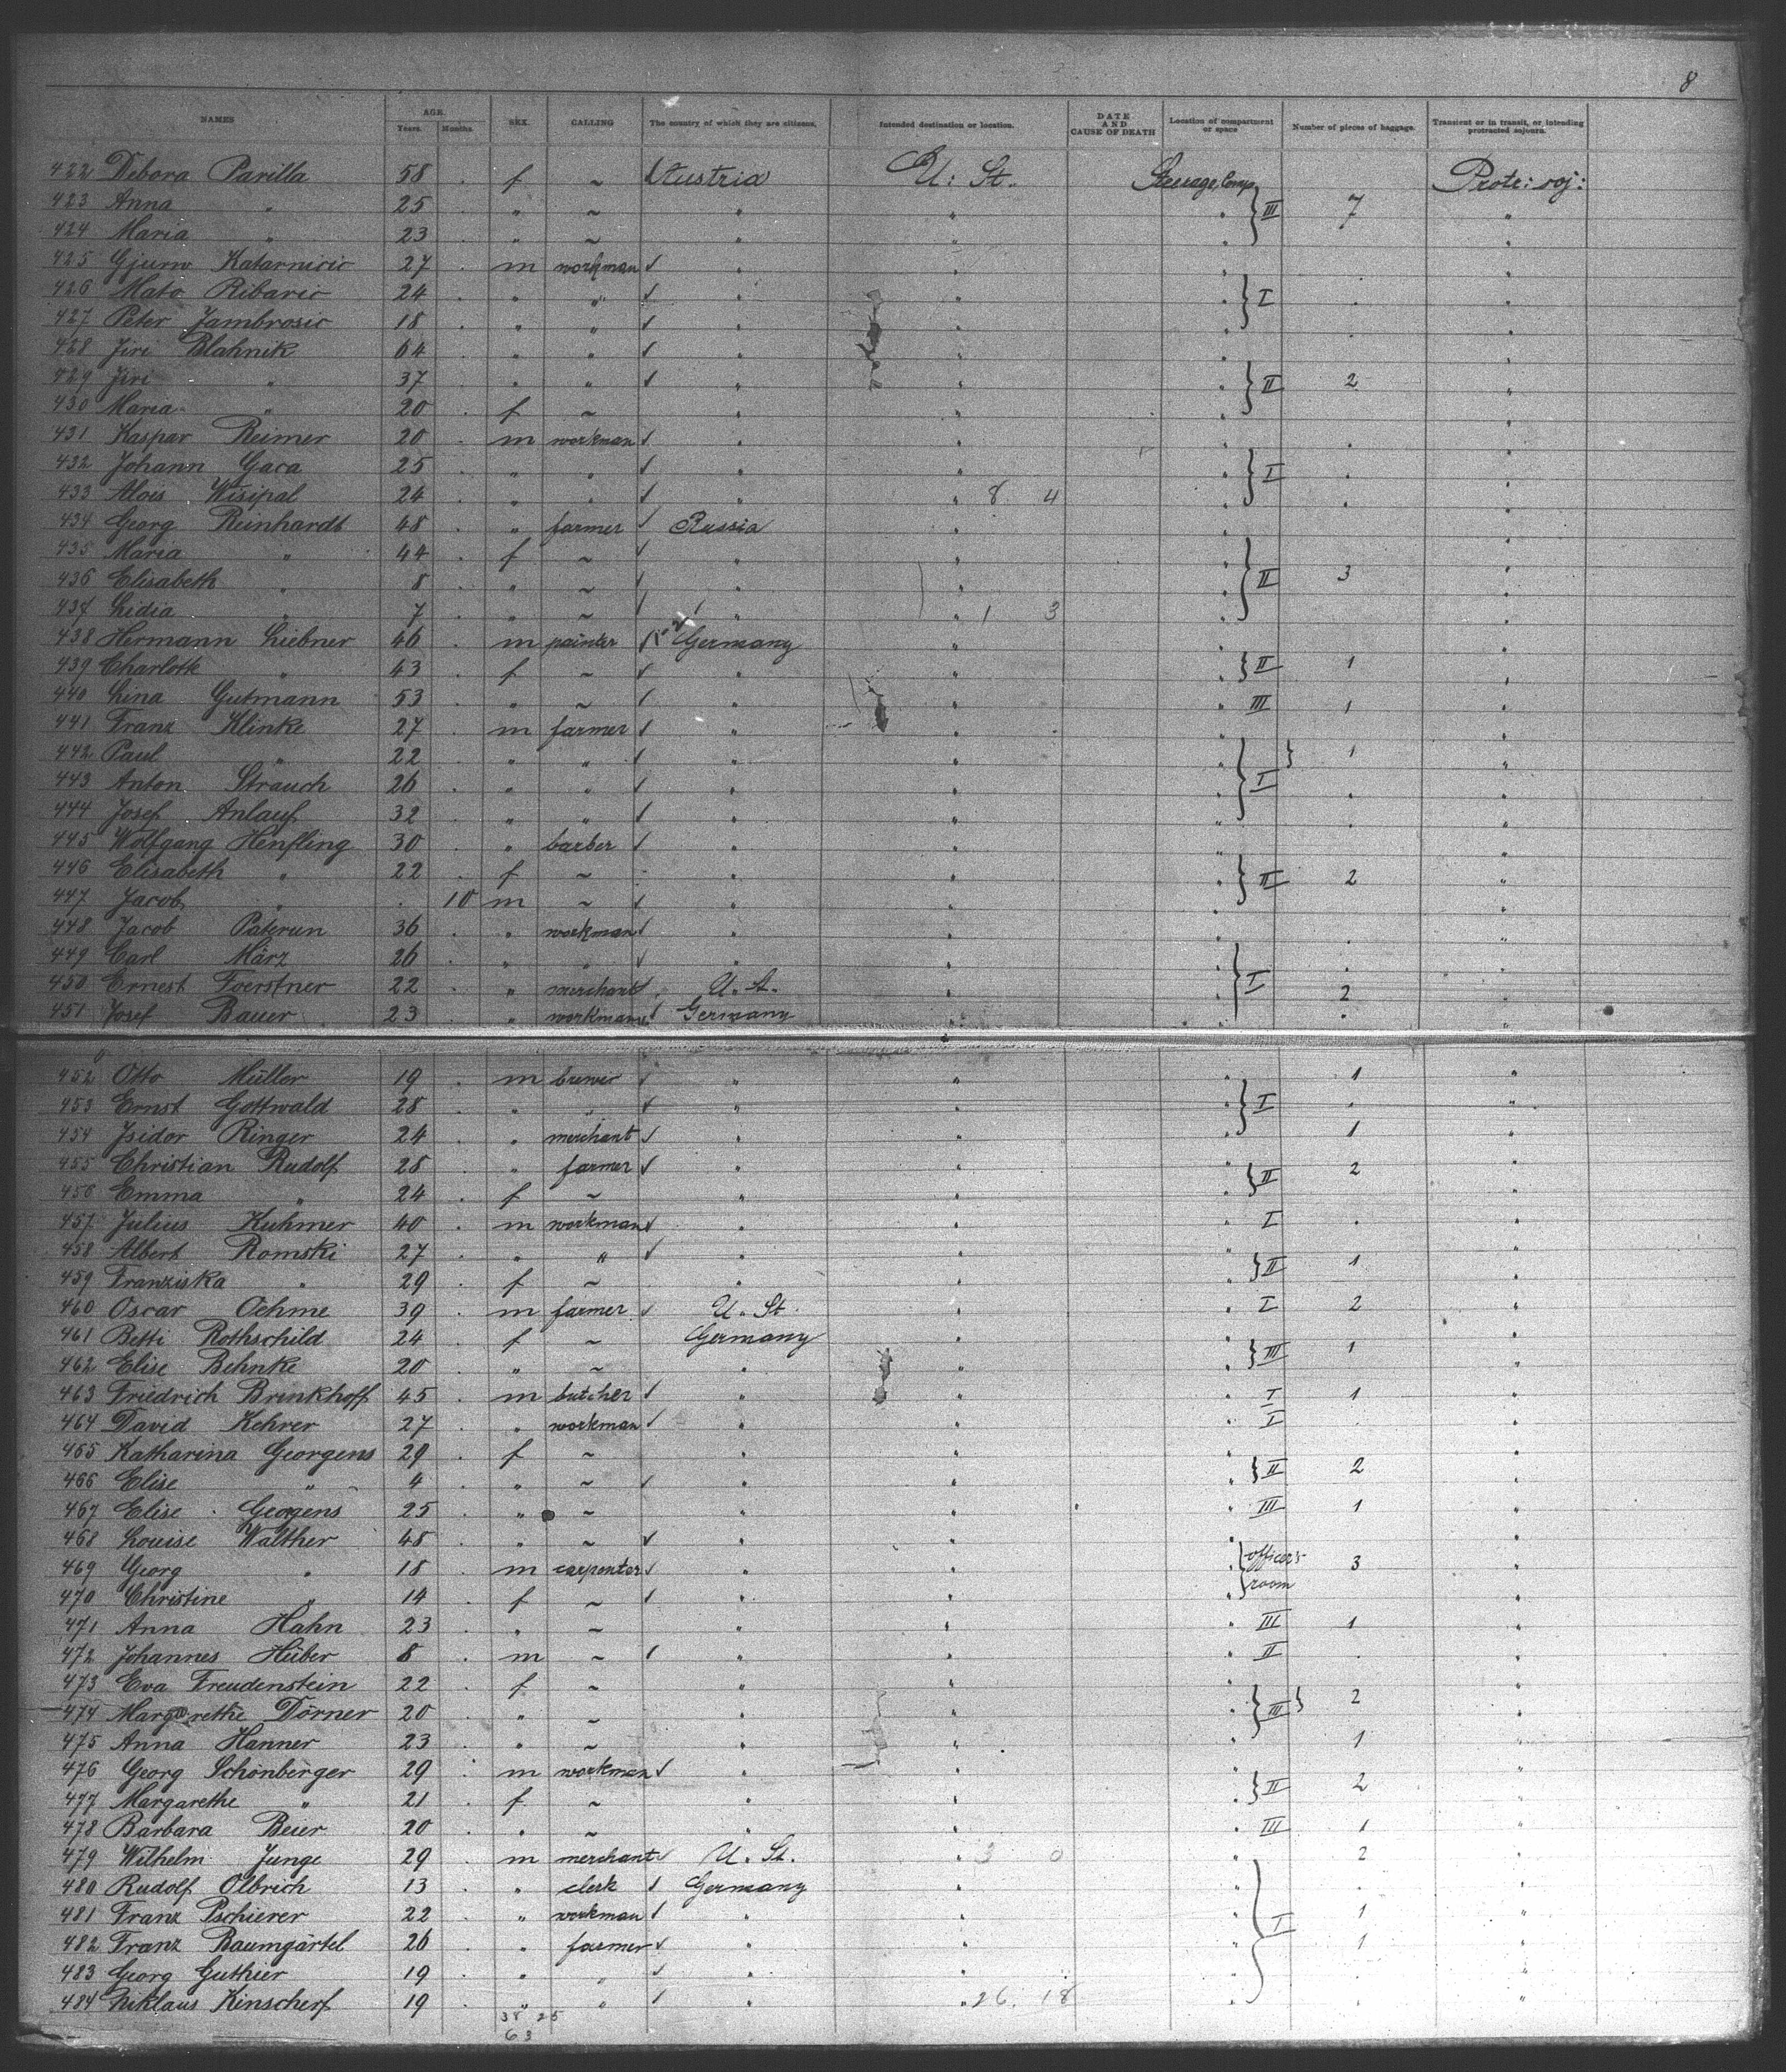 8
NAMES AGE. Years. Months. SEX. CALLING The country of which they are citizens. Intended destination or location. DATE AND CAUSE OF DEATH Location of compartment or space Number of pieces of baggage. Transient or in transit, or intending protracted sojourn.
422 Debora Parilla 58 f ~ Austria U: St. Steerage Comp Prote: soj:
423 Anna " 25 . " ~ " " " III 7 "
424 Maria " 23 . " ~ " " " "
425 Gjuro Katarnicic 27 . m workman √ " " " . "
426 Mato Ribaric 24 . " " √ " " " I . "
427 Peter Jambrosic 18 . " " √ " " " . "
428 Jiri Blahnik 64 . " " √ " " " "
429 Jiri " 37 . " " √ " " " II 2 "
430 Maria " 20 . f ~ " " " "
431 Kaspar Reimer 20 . m workman √ " " " . "
432 Johann Gaca 25 . " " √ " " " I . "
433 Alois Wisipal 24 . " " √ " " 8 4 " . "
434 Georg Reinhardt 48 . " farmer √ Russia " " "
435 Maria " 44 . f ~ √ " " " "
436 Elisabeth " 8 . " ~ √ " " " II 3 "
437 Lidia " 7 . " ~ √ " " 1 3 " "
438 Hermann Liebner 46 . m painter √ Germany " " "
439 Charlotte " 43 . f ~ √ " " " II 1 "
440 Lina Gutmann 53 . " ~ √ " " " III 1 "
441 Franz Klinke 27 . m farmer √ " " " "
442 Paul " 22 . " " √ " " " 1 "
443 Anton Strauch 26 . " " √ " " " I . "
444 Josef Anlauf 32 . " " √ " " " . "
445 Wolfgang Henfling 30 . " barber √ " " " "
446 Elisabeth " 22 . f ~ " " " II 2 "
447 Jacob " . 10 m ~ √ " " " "
448 Jacob Paterun 36 . " workman √ " " " . "
449 Carl März 26 . " " √ " " " . "
450 Ernest Foerstner 22 . " merchant √ U. St. " " I 2 "
451 Josef Bauer 23 . " workman √ Germany " " . "
452 Otto Müller 19 . m brewer √ " " " 1 "
453 Ernst Gottwald 28 . " " √ " " " I . "
454 Isidor Ringer 24 . " merchant √ " " " 1 "
455 Christian Rudolf 28 . " farmer √ " " " II 2 "
456 Emma " 24 . f ~ " " " "
457 Julius Kuhmer 40 . m workman √ " " " I . "
458 Albert Romski 27 . " " √ " " " "
459 Franziska " 29 . f ~ " " " II 1 "
460 Oscar Oehme 39 . m farmer √ U. St. " " I 2 "
461 Betti Rothschild 24 . f ~ Germany " " III 1 "
462 Elise Behnke 20 . " ~ " " " "
463 Friedrich Brinkhoff 45 . m butcher √ " " " I 1 "
464 David Kehrer 27 . " workman √ " " " I . "
465 Katharina Georgens 29 . f ~ " " " "
466 Elise " 4 . " ~ √ " " " II 2 "
467 Elise Georgens 25 . " ~ " " " III 1 "
468 Louise Walther 48 . " ~ √ " " " "
469 Georg " 18 . m carpenter √ " " " officers room 3 "
470 Christine " 14 . f ~ √ " " " "
471 Anna Hahn 23 . " ~ " " " III 1 "
472 Johannes Hüber 8 . m ~ √ " " " II . "
473 Eva Freudenstein 22 . f ~ " " " "
474 Margarethe Dörner 20 . " ~ " " " III 2 "
475 Anna Hanner 23 . " ~ " " " 1 "
476 Georg Schönberger 29 . m workman √ " " " "
477 Margarethe " 21 . f ~ " " " II 2 "
478 Barbara Beier 20 . " ~ " " " III 1 "
479 Wilhelm Junge 29 . m merchant √ U. St. " 3 0 " 2 "
480 Rudolf Olbrich 13 . " clerk √ Germany " " . "
481 Franz Pschierer 22 . " workman √ " " " I 1 "
482 Franz Baumgärtel 26 . " farmer √ " " " 1 "
483 Georg Guthier 19 . " " √ " " " . "
484 Niklaus Kinscherf 19 . " " √ " " 26. 18 " . "
38 25
63